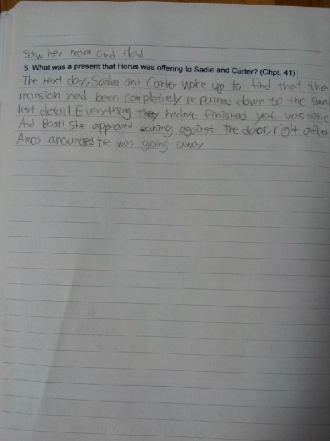 Saw her mom and dad
5. What was a present that Horus was offering to Sadie and Carter? (Chpt. 41)
The next day, Sadie and Carter woke up to find that the
mansion had been completely repaired down to the smal
lest detail. Everything they hadnt finished yet was done
And Bast! She appeared leaning against the door, right after
Amos anounced he was going away